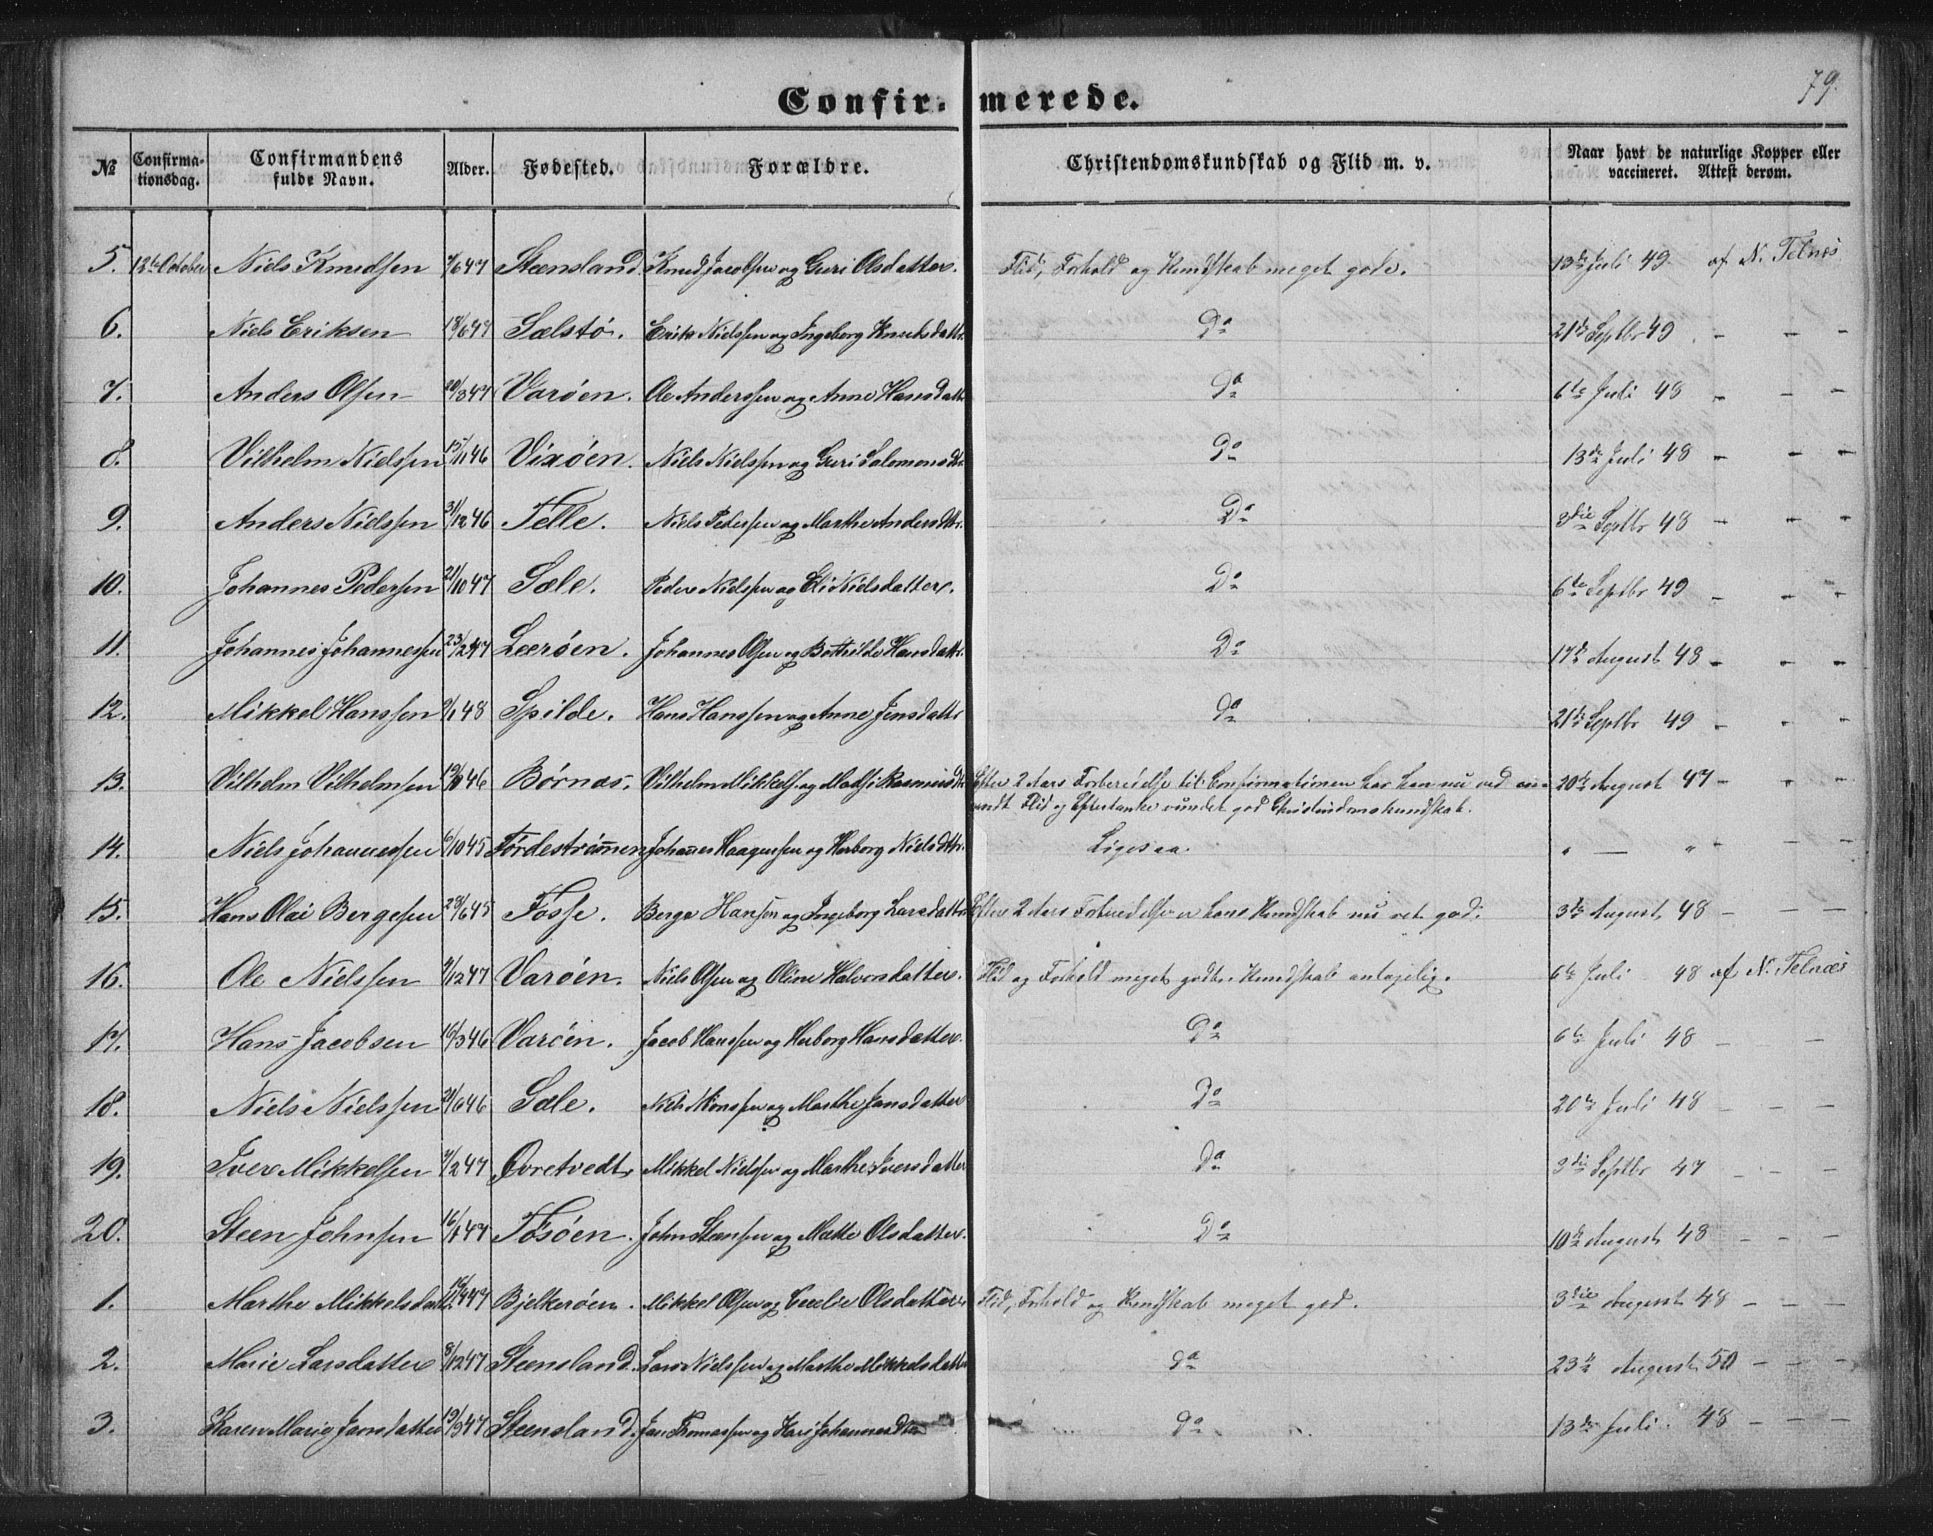 79.
Confir- merede.
№ Confirma- Confirmandens Alder. Fødested. Forældre. Christendomskundskab og Flid m. v. Naar havt de naturlige Kopper eller
tionsdag. fulde Navn. vaccineret. Attest derom.
5. 12te October Niels Knudsen 7/6 47 Steensland. Knud Jacobsen og Guri Olsdatter. Flid, Forhold og Kundskab meget gode. 13de Juli 49 af N. Telnæs
6. Niels Eriksen 18/6 47 Sælstø. Erik Nielssen og Ingeborg Knudsdattr. Do 21de Septbr 49 - - -
7. Anders Olsen 20/3 47 Varøen. Ole Anderssen og Anne Hansdatt Do 6te Juli 48 - - -
8. Vilhelm Nielssen 15/11 46 Vixøen. Niels Nielssen og Guri Salomonsdtr. Do 13de Juli 48 - - -
9. Anders Nielssen 31/12 46 Telle. Niels Pederssen og Marthe Andersdttr. Do 3die Septbr 48 - - -
10. Johannes Pedersen 21/10 47 Sæle. Peder Nielssen og Eli Nielsdatter. Do 6te Septbr 49 - - -
11. Johannes Johannessen 23/2 47 Lerøen. Johannes Olsen og Bothilde Hansdattr. Do 17de August 48 - - -
12. Mikkel Hanssen 9/1 48 Spilde. Hans Hanssen og Anne Jensdattr Do 21de Septbr 49 - - -
13. Vilhelm Vilhelmsen 19/8 46 Børnæs. Vilhelm Mikkels. og Madsi Rasmusdtr Efter 2 Aars Forberedelse til Confirmationen har han nu ved an- 20de August 47 - - -
vendt Flid og Eftertanke vundet god Christendomskundskab.
14. Niels Johannessen 6/10 45 Førdestrømmen Johannes Haagenssen og Herborg Nielsdttr. Ligesaa. " — " - - -
15. Hans Olai Bergesen 29/6 45 Fosse. Berge Hansen og Ingeborg Larsdatter Efter 2 Aars Forberedelse er hans Kundskab nu ret god. 3die August 48 - - -
16. Ole Nielssen 9/12 47 Varøen. Niels Olsen og Oline Halvorsdatter. Flid og Forhold meget godt. Kundskab antagelig. 6te Juli 48 af N. Telnæs
17. Hans Jacobsen 16/3 46 Varøen. Jacob Hanssen og Herborg Hansdatter. Do 6te Juli 48 - -
18. Niels Nielssen 21/6 46 Sæle. Niels Monssen og Marthe Jansdatter Do 20de Juli 48 - - -
19. Iver Mikkelsen 7/2 47 Øvretvedt. Mikkel Nielssen og Marthe Iversdatter Do 3die Septbr 47 - - -
20. Steen Johnsen 16/1 47 Tøsøen. John Steenssen og Mette Olsdatter. Do 10de August 48 - - -
1. Marthe Mikkelsdattr. 16/4 47 Bjelkerøen. Mikkel Olsen og Cecelie Olsdatter. Flid, Forhold og Kundskab meget god. 3die August 48 - - -
2. Marie Larsdatter 8/12 47 Steensland. Lars Nielssen og Marthe Mikkelsdatter Do 23de August 50 - - -
3. Karen Marie Jansdatter 19/9 47 Steensland. Jan Thomassen og Kari Johannesdtr Do 13de Juli 48 - - -